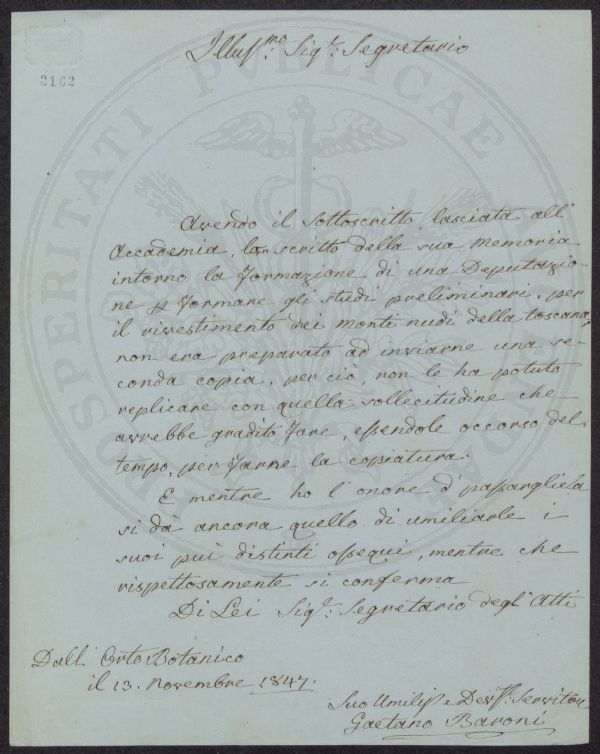 Illusmo: Sigr: Segretario
2162
PROSPERITATI PUBLICAE AUGENDAE
Avendo il sottoscritto, lasciata all'
Accademia, lo scritto della sua Memoria
intorno la formazione di una Deputazio-
ne p formare gli studi preliminari, per
il rivestimento dei monti nudi della toscana,
non era preparato ad inviarne una se-
conda copia, per ciò, non le ha potuto
replicare con quella sollecitudine che
avrebbe gradito fare, essendole occorso del
tempo, per farne la copiatura.
E mentre ho l'onore d' passargliela
si dà ancora quello di umiliarle i
suoi più distinti ossequi, mentre che
rispettosamente si conferma
Di Lei Sigr: Segretario degl'Atti
Dall' Orto Botanico
il 13. Novembre 1847.
Suo Umiliss e Devss: Servitore
Gaetano Baroni